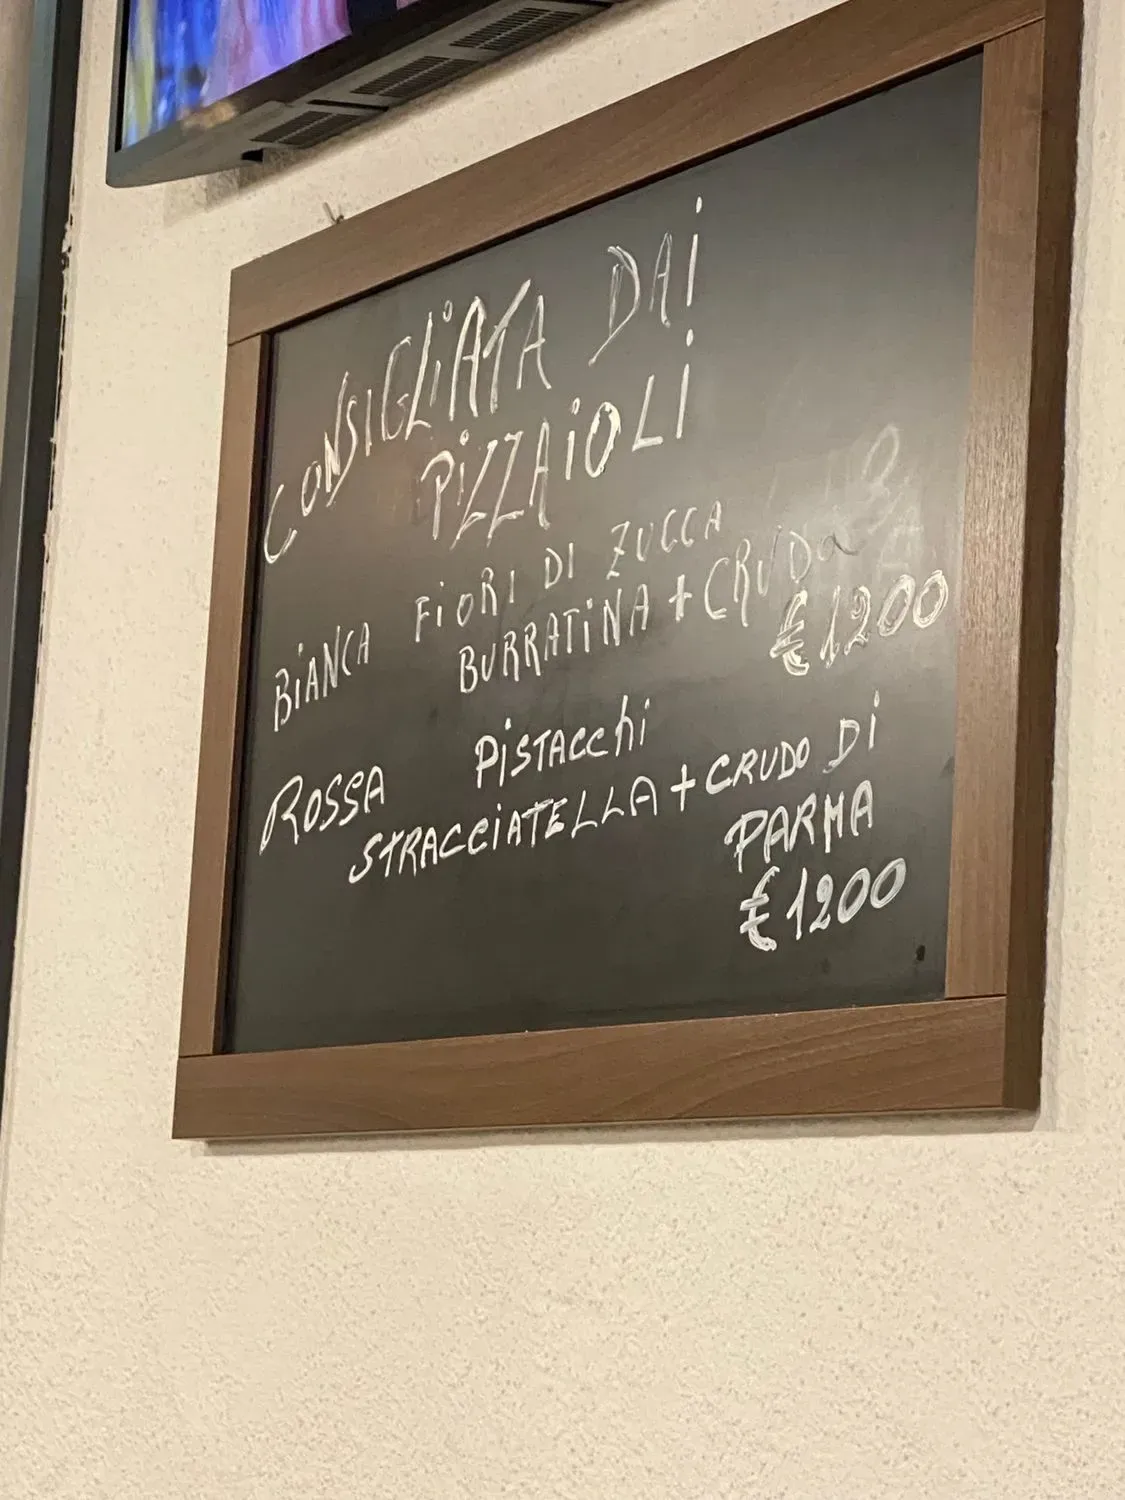 CONSIGLiATA DAi
PiZZAiOLi
BiANCA FiORI DI ZUCCA
BURRATiNA + CRUDO
€ 1200
ROSSA PiSTACChi
STRACCiATELLA + CRUDO Di
PARMA
€ 1200